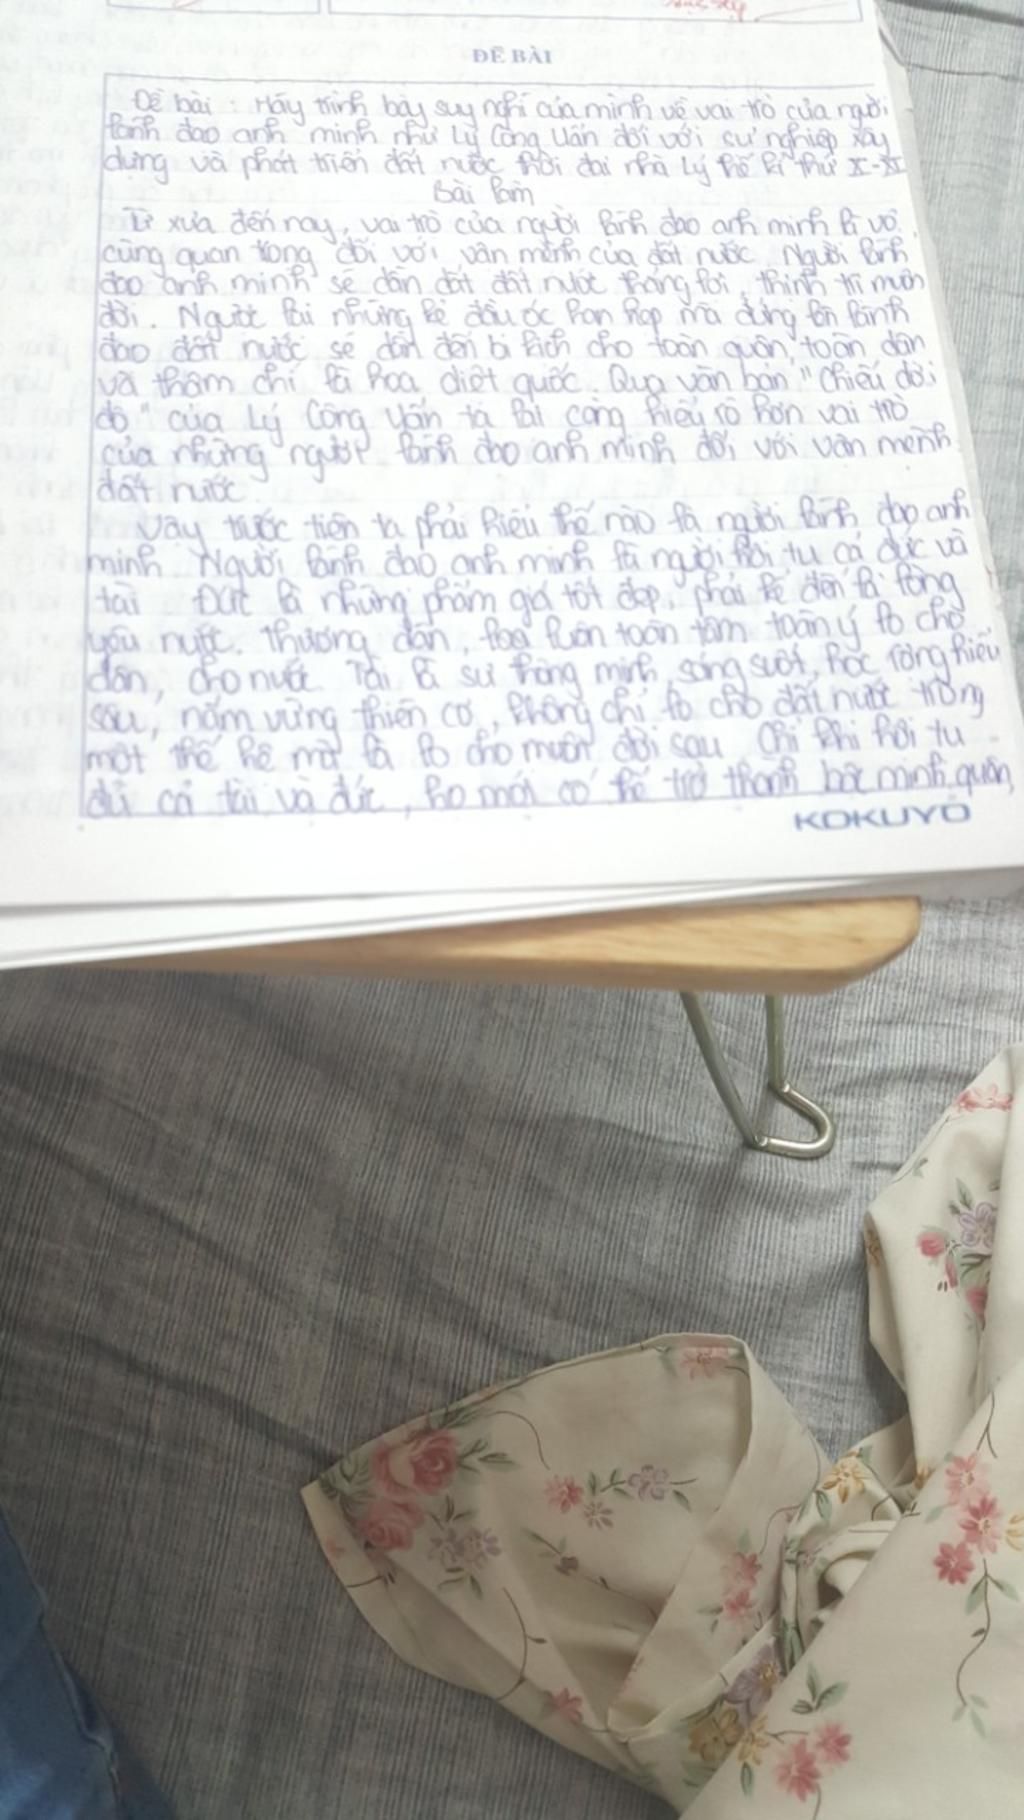 ĐỀ BÀI
Đề bài : Hãy trình bày suy nghĩ của mình về vai trò của người
lãnh đạo anh minh như Lý Công Uẩn đối với sự nghiệp xây
dựng và phát triển đất nước thời đại nhà Lý thế kỉ thứ X-XI
Bài làm
Từ xưa đến nay, vai trò của người lãnh đạo anh minh là vô
cùng quan trọng đối với vận mệnh của đất nước. Người lãnh
đạo anh minh sẽ dẫn dắt đất nước thắng lợi, thịnh trị muôn
đời. Ngược lại những kẻ đầu óc hạn hẹp mà đứng lên lãnh
đạo đất nước sẽ dẫn đến bi kịch cho toàn quân, toàn dân
và thậm chí là họa diệt quốc. Qua văn bản "Chiếu dời
đô" của Lý Công Uẩn ta lại càng hiểu rõ hơn vai trò
của những người lãnh đạo anh minh đối với vận mệnh
đất nước
Vậy trước tiên ta phải hiểu thế nào là người lãnh đạo anh
minh. Người lãnh đạo anh minh là người hội tụ cả đức và
tài. Đức là những phẩm giá tốt đẹp, phải kể đến là lòng
yêu nước, thương dân, luôn toàn tâm toàn ý lo cho
dân, cho nước. Tài là sự thông minh, sáng suốt, học rộng hiểu
sâu, nắm vững thiên cơ, không chỉ lo cho đất nước trong
một thế hệ mà là lo cho muôn đời sau. Chỉ khi hội tụ
đủ cả tài và đức, họ mới có thể trở thành bậc minh quân,
KOKUYO